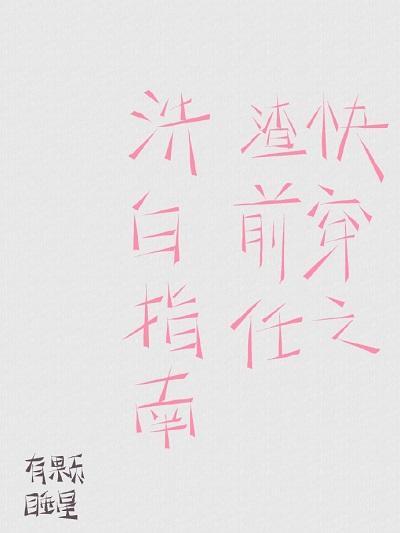 快穿之
渣前任
洗白指南
有颗
睡星